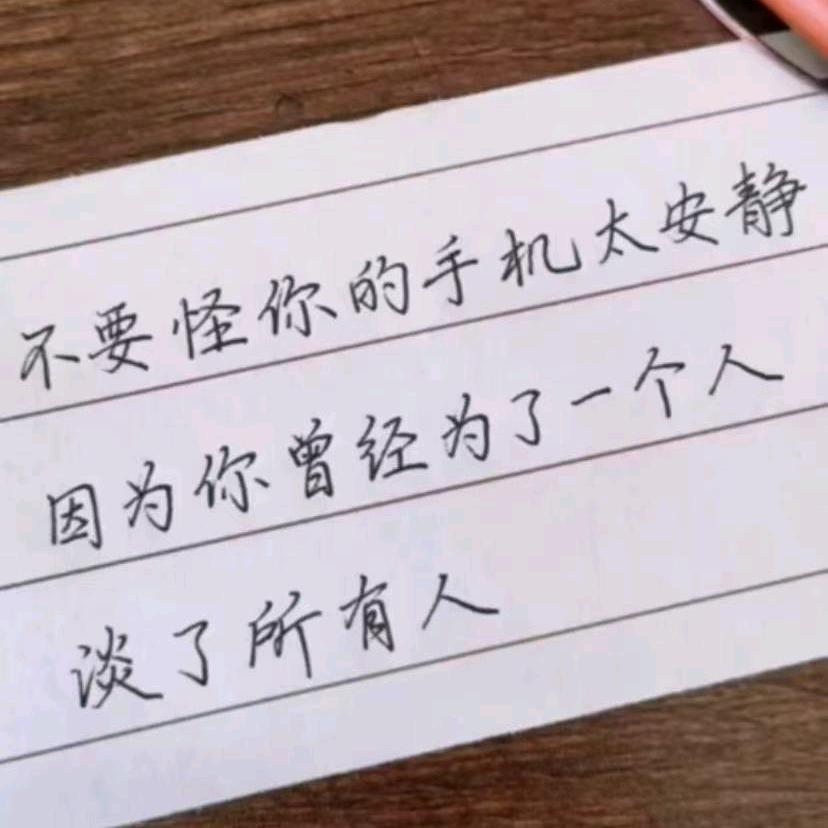 不要怪你的手机太安静
因为你曾经为了一个人
淡了所有人